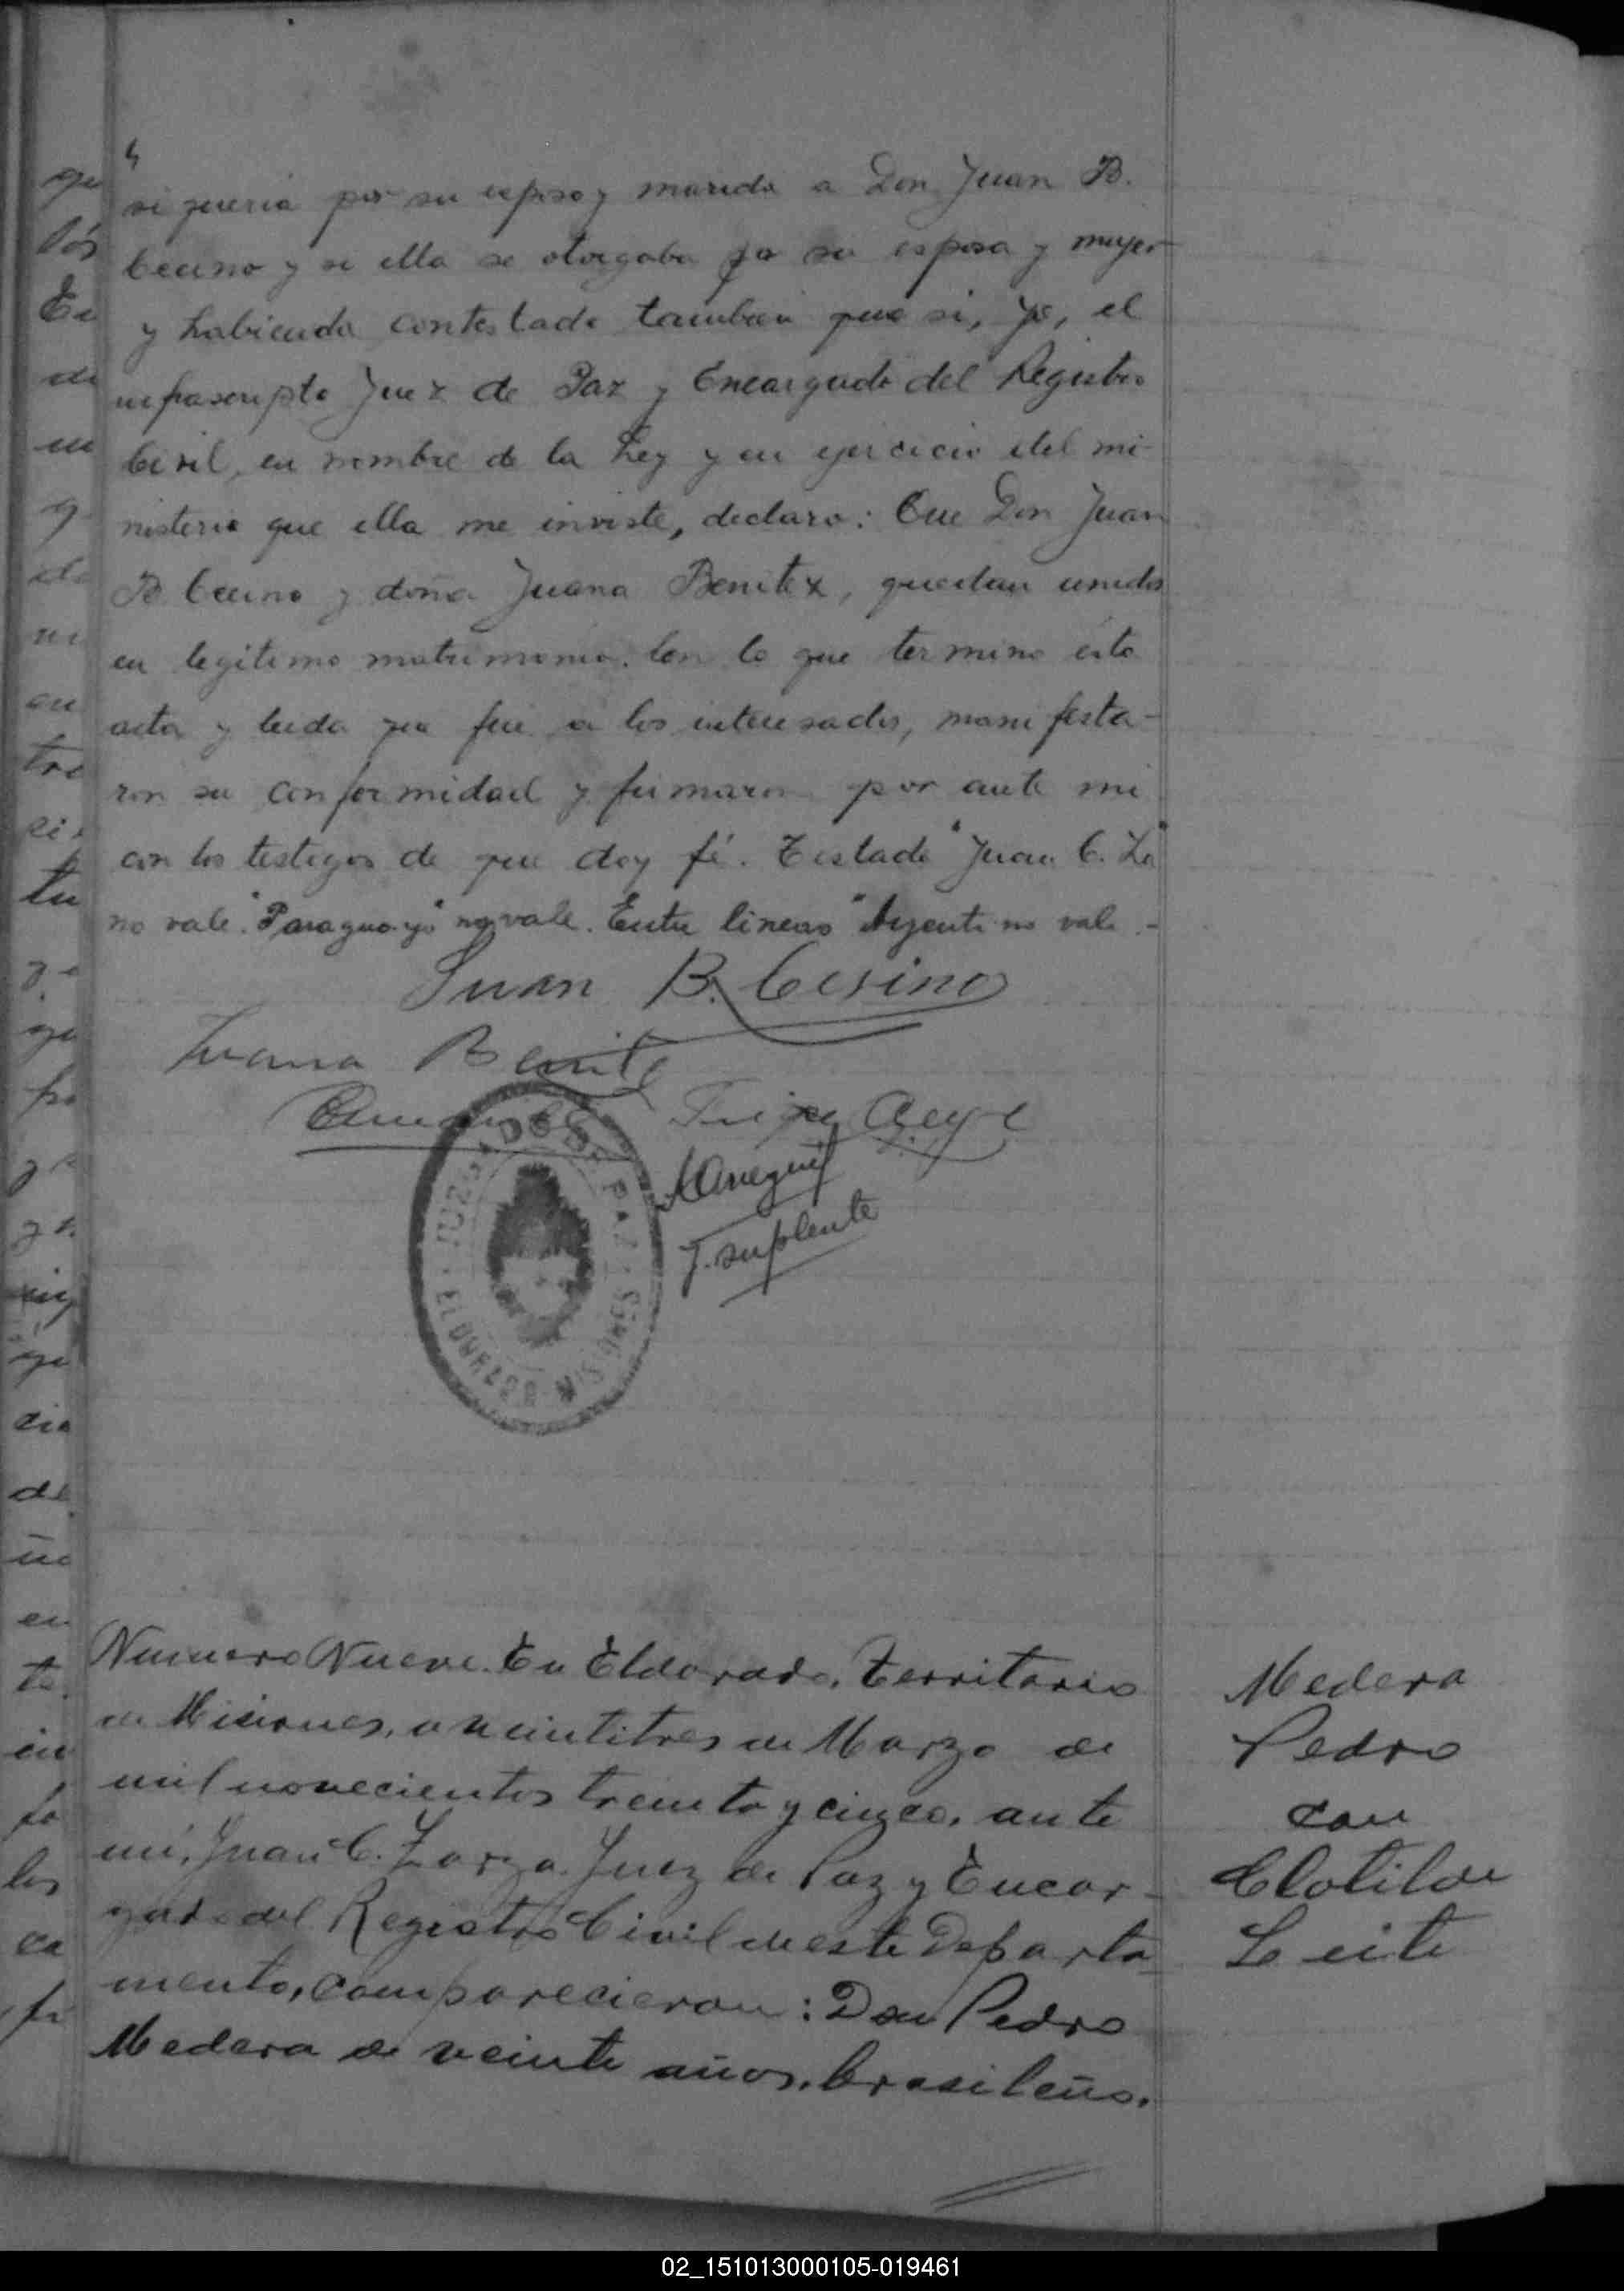 si queria por su esposo y marido a Don Juan B.
Cecino y si ella se otorgaba por su esposa y mujer
y habiendo contestado tambien que si, yo, el
infrascripto Juez de Paz y Encargado del Registro
Civil, en nombre de la Ley y en ejercicio del mi-
nisterio que ella me inviste, declaro: Que Don Juan
B. Cecino y doña Juana Benitez, quedan unidos
en legitimo matrimonio. Con lo que termino esta
acta y leida que fué a los interesados, manifesta-
ron su conformidad y firmaron por ante mi
con los testigos de que doy fé. Testado "Juan C. Za"
no vale. "Paraguayo" no vale. Entre lineas "Argentino vale.-
Juan B. Cesino
Juana Benite
J. suplente
JUZGADO DE PAZ
ELDORADO MISIONES
Numero Nueve. En Eldorado, Territorio
de Misiones, a veintitres de Marzo de
mil novecientos treinta y cinco, ante
mi, Juan C. Zarza Juez de Paz y Encar-
gado del Registro Civil de este Departa-
mento, comparecieron: Don Pedro
Medera de veinte años, brasileño,
Medera
Pedro
con
Clotilde
Leite
02_151013000105-019461